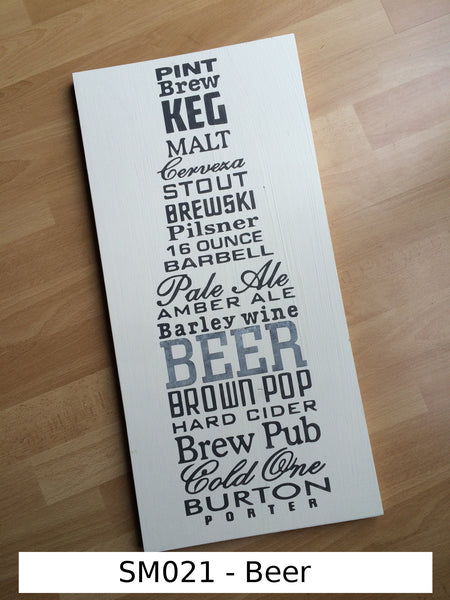 PINT
Brew
KEG
MALT
Cerveza
STOUT
BREWSKI
Pilsner
16 OUNCE
BARBELL
Pale Ale
AMBER ALE
Barley wine
BEER
BROWN POP
HARD CIDER
Brew Pub
Cold One
BURTON
PORTER
SM021 - Beer